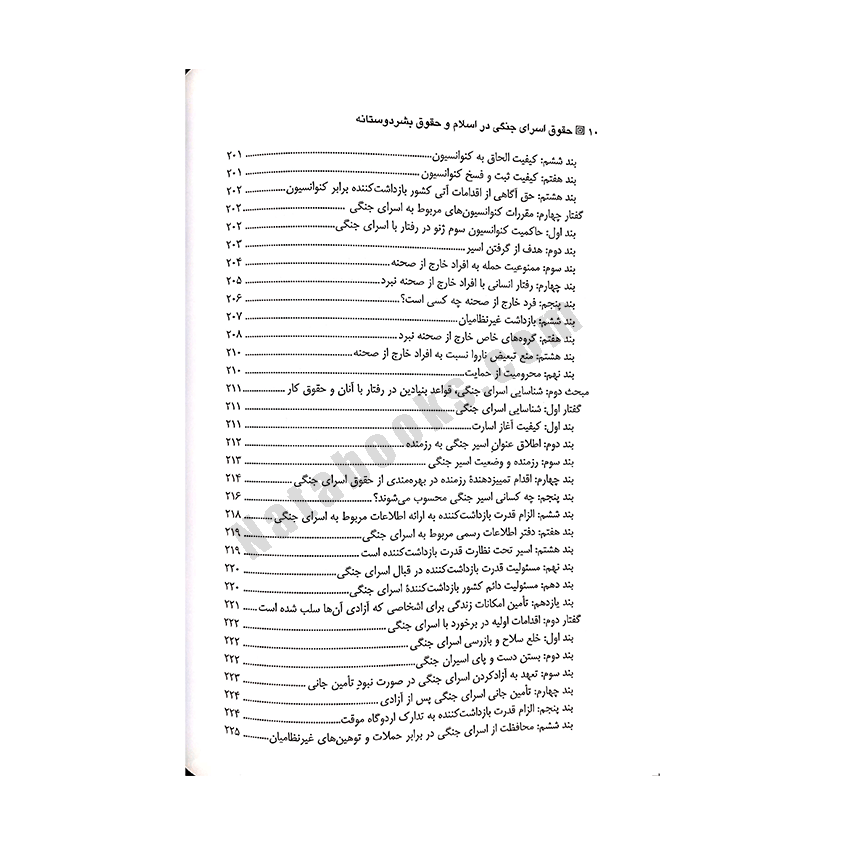 ۱۰ حقوق اسرای جنگی در اسلام و حقوق بشردوستانه
بند ششم: کیفیت الحاق به کنوانسیون ۲۰۱
بند هفتم: کیفیت ثبت و فسخ کنوانسیون ۲۰۱
بند هشتم: حق آگاهی از اقدامات آتی کشور بازداشت‌کننده برابر کنوانسیون ۲۰۲
گفتار چهارم: مقررات کنوانسیون‌های مربوط به اسرای جنگی ۲۰۲
بند اول: حاکمیت کنوانسیون سوم ژنو در رفتار با اسرای جنگی ۲۰۲
بند دوم: هدف از گرفتن اسیر ۲۰۳
بند سوم: ممنوعیت حمله به افراد خارج از صحنه ۲۰۴
بند چهارم: رفتار انسانی با افراد خارج از صحنه نبرد ۲۰۵
بند پنجم: فرد خارج از صحنه چه کسی است؟ ۲۰۶
بند ششم: بازداشت غیرنظامیان ۲۰۷
بند هفتم: گروه‌های خاص خارج از صحنه نبرد ۲۰۸
بند هشتم: منع تبعیض ناروا نسبت به افراد خارج از صحنه ۲۱۰
بند نهم: محرومیت از حمایت ۲۱۰
مبحث دوم: شناسایی اسرای جنگی، قواعد بنیادین در رفتار با آنان و حقوق کار ۲۱۱
گفتار اول: شناسایی اسرای جنگی ۲۱۱
بند اول: کیفیت آغاز اسارت ۲۱۱
بند دوم: اطلاق عنوان اسیر جنگی به رزمنده ۲۱۲
بند سوم: رزمنده و وضعیت اسیر جنگی ۲۱۳
بند چهارم: اقدام تمییزدهندهٔ رزمنده در بهره‌مندی از حقوق اسرای جنگی ۲۱۴
بند پنجم: چه کسانی اسیر جنگی محسوب می‌شوند؟ ۲۱۶
بند ششم: الزام قدرت بازداشت‌کننده به ارائه اطلاعات مربوط به اسرای جنگی ۲۱۸
بند هفتم: دفتر اطلاعات رسمی مربوط به اسرای جنگی ۲۱۹
بند هشتم: اسیر تحت نظارت قدرت بازداشت‌کننده است ۲۱۹
بند نهم: مسئولیت قدرت بازداشت‌کننده در قبال اسرای جنگی ۲۲۰
بند دهم: مسئولیت دائم کشور بازداشت‌کنندهٔ اسرای جنگی ۲۲۰
بند یازدهم: تأمین امکانات زندگی برای اشخاصی که آزادی آن‌ها سلب شده است ۲۲۱
گفتار دوم: اقدامات اولیه در برخورد با اسرای جنگی ۲۲۲
بند اول: خلع سلاح و بازرسی اسرای جنگی ۲۲۲
بند دوم: بستن دست و پای اسیران جنگی ۲۲۲
بند سوم: تعهد به آزادکردن اسرای جنگی در صورت نبودِ تأمین جانی ۲۲۳
بند چهارم: تأمین جانی اسرای جنگی پس از آزادی ۲۲۴
بند پنجم: الزام قدرت بازداشت‌کننده به تدارک اردوگاه موقت ۲۲۴
بند ششم: محافظت از اسرای جنگی در برابر حملات و توهین‌های غیرنظامیان ۲۲۵
Narabooks.com